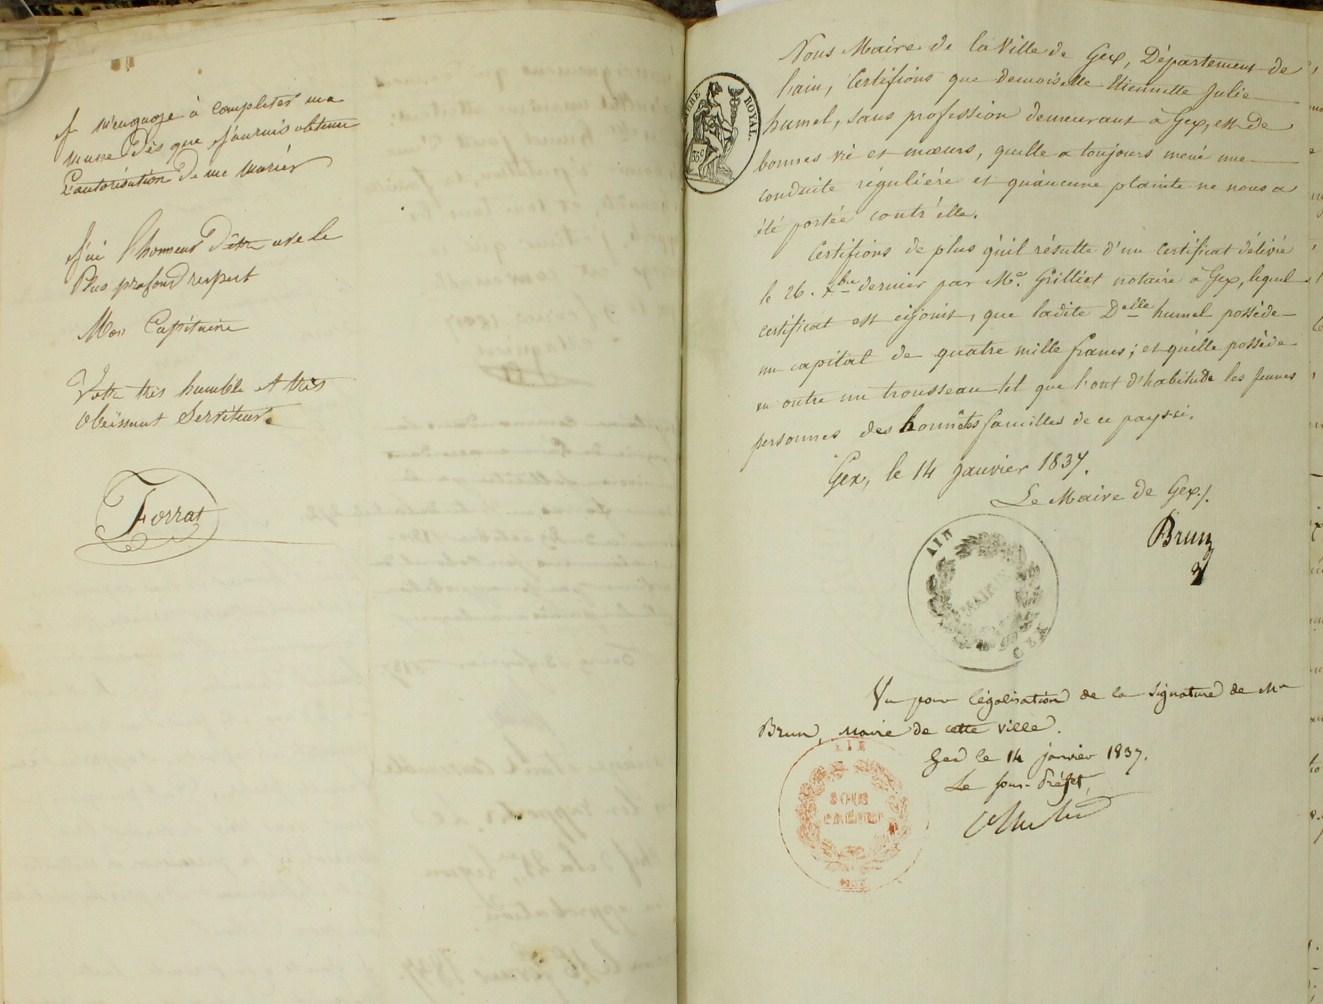 Je m'engage à completer ma
masse Dès que j'aurais obtenu
L'autorisation De me marier
J'ai l'honneur D'être avec le
Plus profond respect
Mon Capitaine
Votre très humble et très
Obéissant Serviteur.
Forrat
Nous Maire de la Ville de Gex, Département de
l'ain, Certifions que demoiselle Etiennette Julie
humel, sans profession demeurant à Gex, est de
bonnes vie et mœurs, qu'elle a toujours mené une
conduite régulière et qu'aucune plainte ne nous a
été portée contr'elle.
Certifions de plus qu'il résulte d'un certificat délivré
le 26. Xbre dernier par Me. Grilliet notaire à Gex, lequel
certificat est cijoint, que ladite Delle humel possède
un capital de quatre mille francs; et qu'elle possède
en outre un trousseau tel que l'ont d'habitude les jeunes
personnes des honnêtes familles de ce pays-ci.
Gex, le 14 Janvier 1837.
Le Maire de Gex./.
Brun
ROYAL
35c
AIN
MAIRIE
GEX
Vu pour légalisation de la signature de Mr
Brun, maire de cette ville.
Gex le 14 janvier 1837.
Le sous-Préfet,
AIN
SOUS
PRÉFECT
GEX